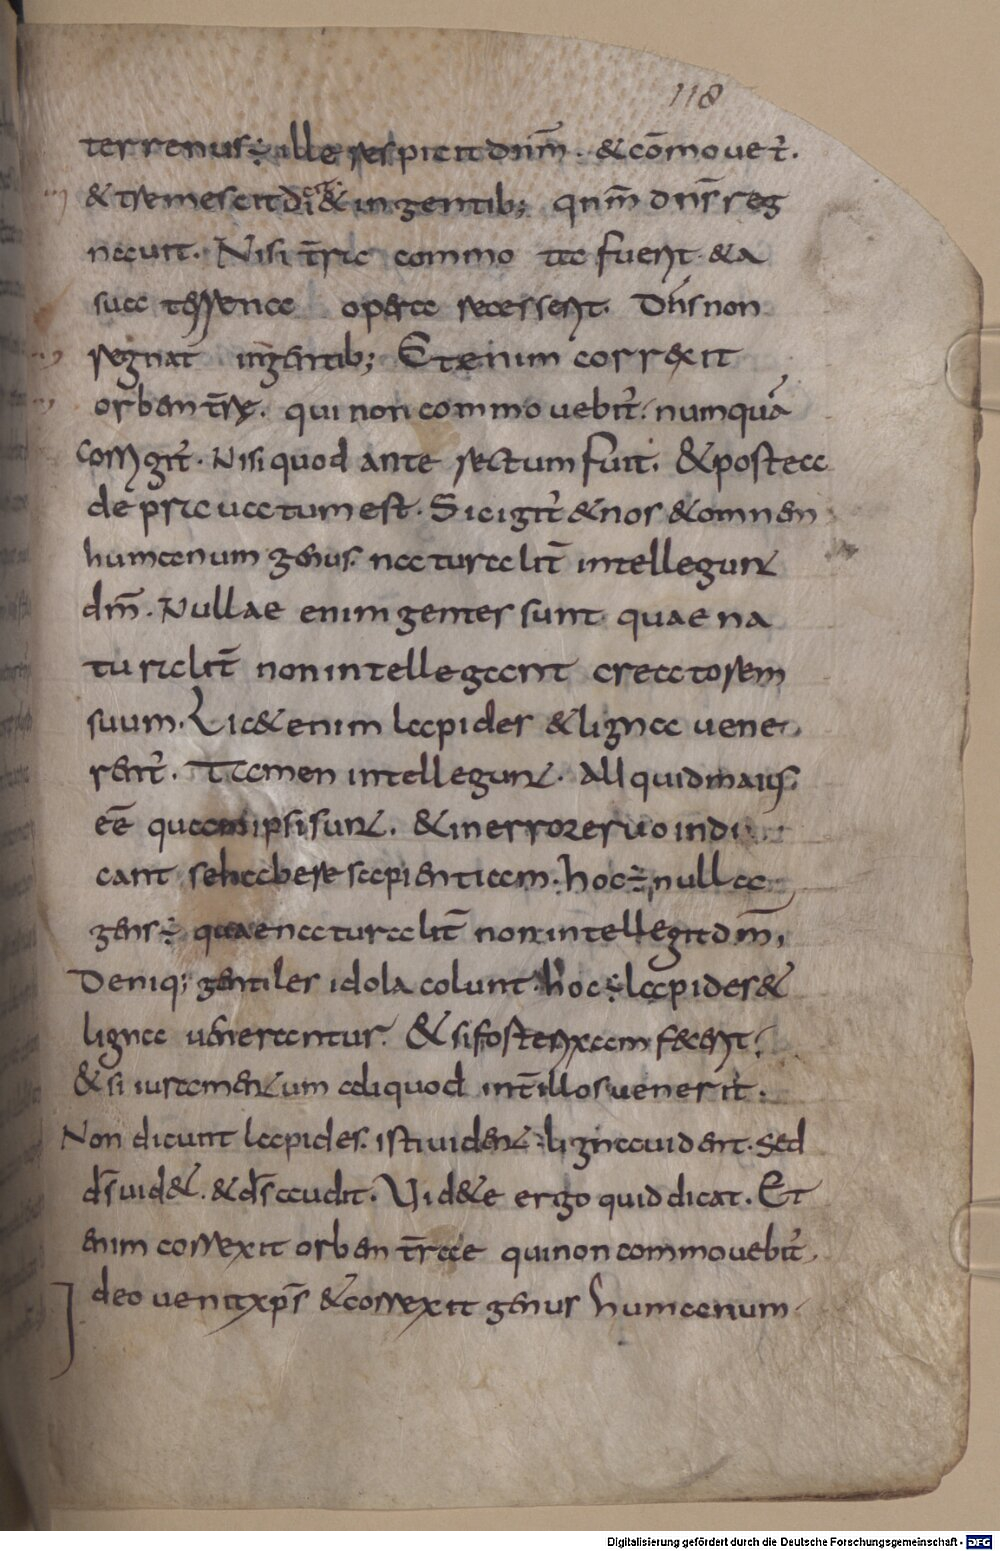 118
terrenus ÷ ille respicit dnm̄. & cōmouet᷑.
& tremescit Dicit & in gentib; qnm̄ dns̄ reg
nauit. Nisi t̄ra commo ta fuerit & a
sua terrena opera recesserit. Dn̄s non
regnat in gentib; Etenim correxit
orben t̄rę. qui non commouebit᷑. numquā
corrigit᷑. Nisi quod ante rectum fuit. & postea
deprauatum est. Sic igit᷑ & nos & omnen
humanum genus. naturalit̄ intellegunt
dm̄. Nullae enim gentes sunt quae na
turalit̄ non intellegant creatorem
suum. Lic& enim lapides & ligna uene
rent᷑. Tamen intellegunt. Aliquid maius
eē quam ipsi sunt. & in errore suo indi
cant se habere sapientiam. hoc ÷ nulla
gens ÷ quae naturalit̄ non intellegit dm̄,
Deniq; gentiles idola colunt. hoc ÷ lapides &
ligna uenerantur. & si forte rixam fecerit.
& si iuramentum aliquod int̄ illos uenerit.
Non dicunt lapides. isti uident. ligna uident. Sed
ds̄ uid&. & ds̄ audit. Uid&e ergo quid dicat. Et
enim correxit orben t̄rae qui non commouebit᷑.
Ideo uenit xps̄ & correxit genus humanum
Digitalisierung gefördert durch die Deutsche Forschungsgemeinschaft - DFG